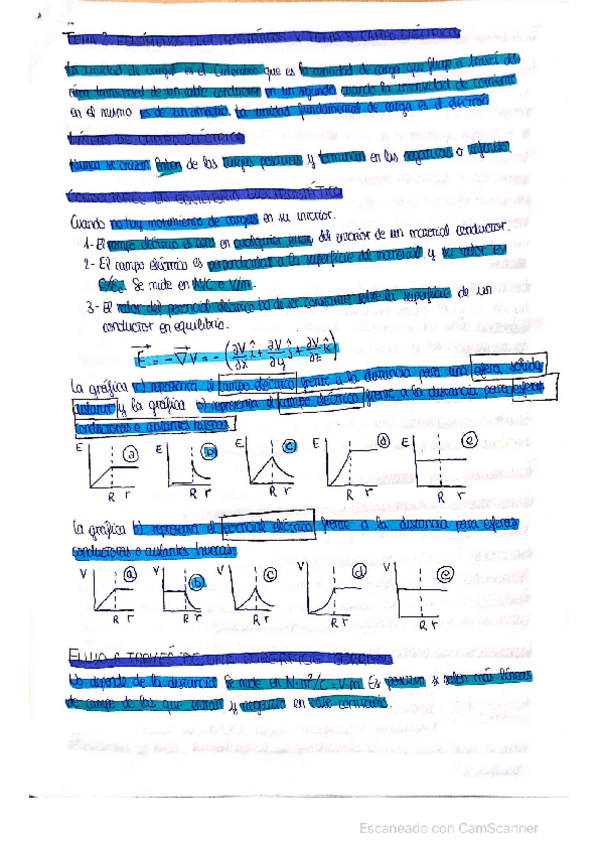 TEMA 2. FENÓMENOS ELECTROSTÁTICOS Y TEMA 3. CAMPO ELÉCTRICO
La unidad de carga es el Culombio que es la cantidad de carga que fluye a través del
área transversal de un cable conductor en un segundo cuando la intensidad de corriente
en el mismo es de un amperio. La unidad fundamental de carga es el electrón.
LÍNEAS DE CAMPO ELÉCTRICO
Nunca se cruzan. Parten de las cargas positivas y terminan en las negativas o infinito.
CONDUCTORES EN EQUILIBRIO ELECTROSTÁTICO
Cuando no hay movimiento de cargas en su interior.
1- El campo eléctrico es cero en cualquier punto del interior de un material conductor.
2- El campo eléctrico es perpendicular a la superficie del material y su valor es
Se mide en N/C o V/m.
3- El valor del potencial eléctrico ha de ser constante sobre la superficie de un
conductor en equilibrio.
E = -∇V = -(∂V/∂x î + ∂V/∂y ĵ + ∂V/∂z k̂)
La gráfica c) representa el campo eléctrico frente a la distancia para una esfera sólida
aislante y la gráfica b) representa el campo eléctrico frente a la distancia para esferas
conductoras o aislantes huecas.
E a E b E c E d E e
R r R r R r R r R r
La gráfica b) representa el potencial eléctrico frente a la distancia para esferas
conductoras o aislantes huecas.
V a V b V c V d V e
R r R r R r R r R r
FLUJO A TRAVÉS DE UNA SUPERFICIE CERRADA
No depende de la distancia. Se mide en N·m²/C = V·m. Es positivo si salen más líneas
de campo de las que entran y negativo en caso contrario.
Escaneado con CamScanner